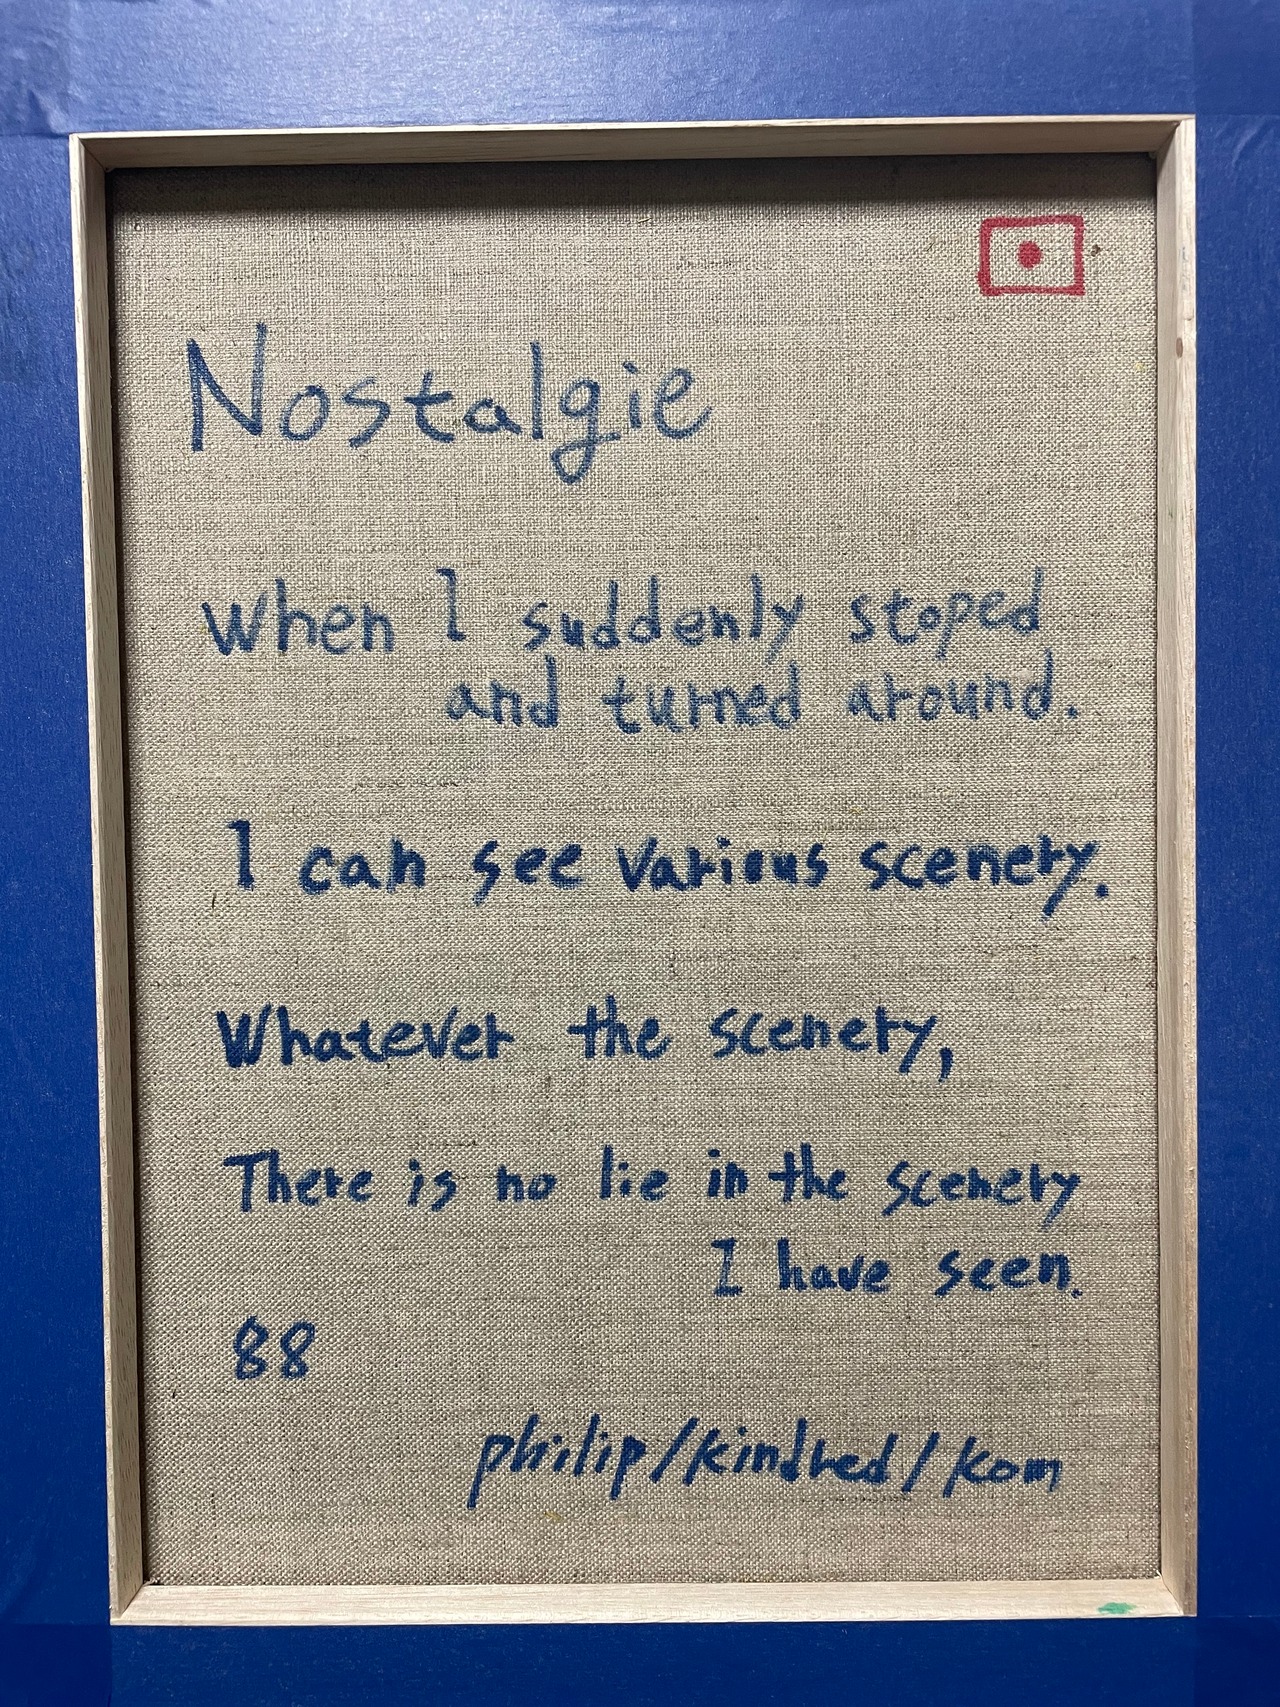 Nostalgie
when I suddenly stoped
and turned around.
I can see various scenery.
Whatever the scenery,
There is no lie in the scenery
I have seen.
88
philip/kindred/kom